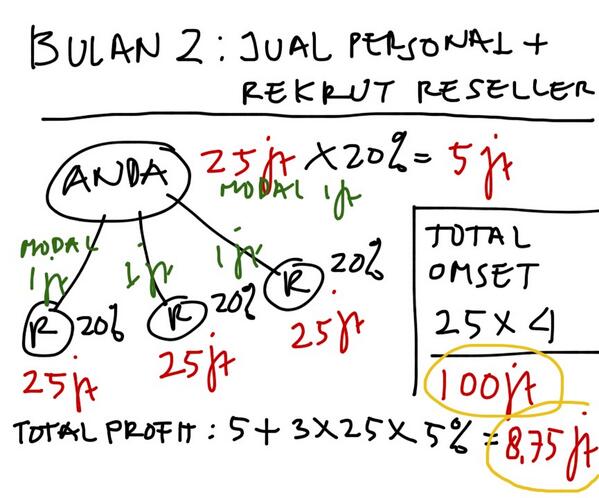 BULAN 2 : JUAL PERSONAL +
REKRUT RESELLER
ANDA
25 jt X 20% = 5 jt
MODAL 1 jt
MODAL
1 jt
1 jt
1 jt
R 20%
R 20%
R 20%
25 jt
25 jt
25 jt
TOTAL
OMSET
25 X 4
100 jt
TOTAL PROFIT : 5 + 3 X 25 X 5% = 8,75 jt